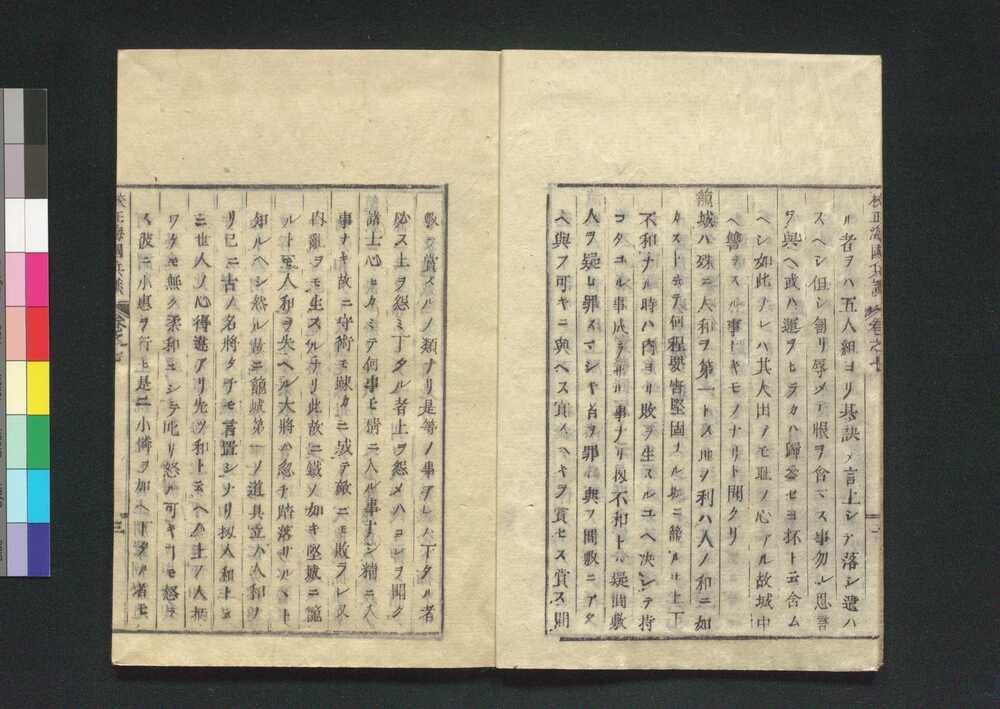 ル者ヲハ五人組ヨリ其訣ヲ言上シテ落シ遣ハ
スヘシ但シ創リ辱メテ恨ヲ含マス事勿レ思
ヲ與ヘ或ハ運ヲヒラカハ歸参セヨ抔ト云含ム
ヘシ如此ナレハ其人出テモ耻ノ心アル故城中
ヘ讐ヲスル事トキモノナリト聞タリ
籠城ハ殊ニ人和ヲ第一トス地ヲ利ハ人ノ和ニ如
カスト云テ何程要害堅固ノル地ニ籠ルトモ上下
不和ナル時ハ内ヨリ敗ヲ生スルユヘ決シテ持
コタユル事成ラサル事ナリ因不和トハ疑間敷
人ヲ疑ヒ罪スマシキ者ヲ罪シ與フ間敷ニアタ
ヘ與フ可キニ與ヘス賞スヘキヲ賞セス賞ス間
敷ヲ賞スルノ類ナリ是等ノ事アレハ下タル者
必ス上ヲ怨ミ下タル者上ヲ怨メハヨシヲ聞ク
諸士心ヒカミテ何事モ精ニ入ル事ナシ精ニ入
事ナキ故ニ守術モ疎カニ成テ敵ニモ敗ラレ又
内雜ヲモ生スルナリ此故ニ鐵ノ如キ堅城ニ籠
ルトモ人和ヲ失ヘル大將ハ忽チ陷落サルヽト
知ルヘシ然ル故ニ籠城第一ノ道具立ハ人和ヲ
リ已ニ古ノ名將タチモ言置シナリ拟人和トテ
ニ世人ノ心得違アリ先ツ和ト云ヘハ上ノ人柄
ワタモ無ク柔和ニシテ叱リ怒ル可キ事モ怒ラ
ス彼ニ小惠ヲ行ヒ是ニ小憐ヲ加ヘ下タル者モ
校正海國兵談
卷之十
三